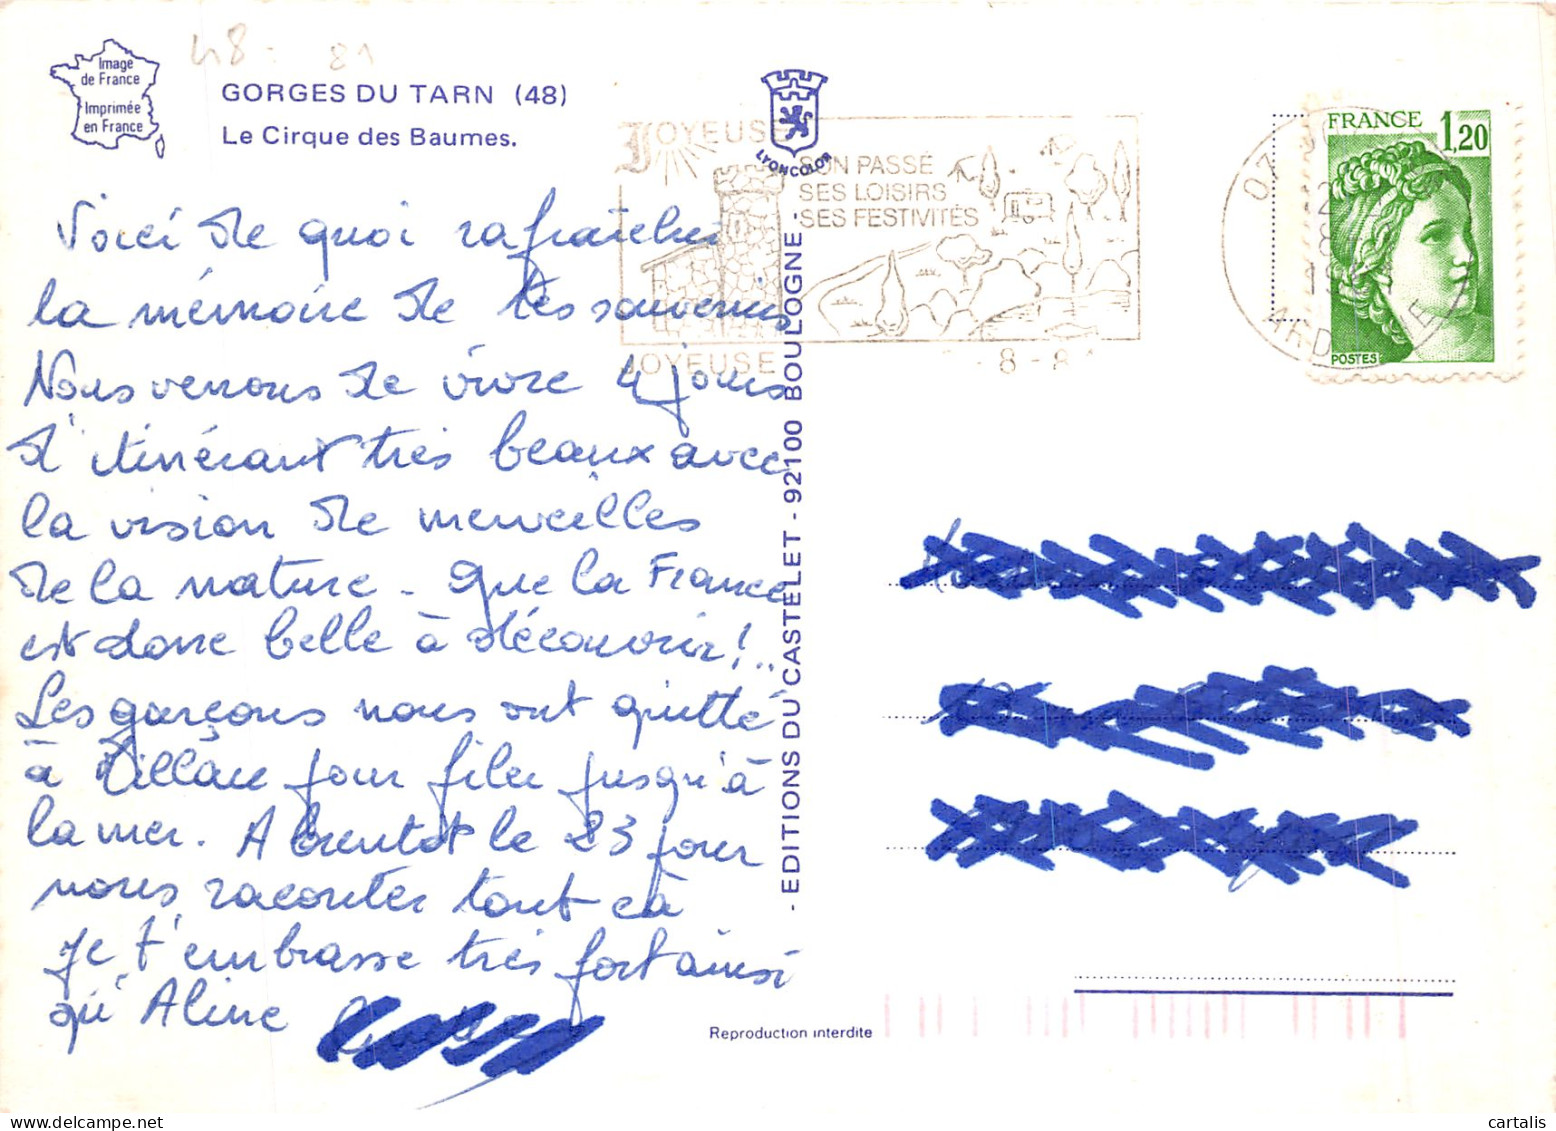 48 - 81
Image
de France
Imprimée
en France
GORGES DU TARN (48)
Le Cirque des Baumes.
Voici de quoi rafraichir
la mémoire de tes souvenirs
Nous venons de vivre 4 jours
d'itinérant très beaux avec
la vision de merveilles
de la nature - Que la France
est donc belle à découvrir !..
Les garçons nous ont quitté
à pour filer jusqu'à
la mer. A bientôt le 23 pour
nous raconter tout çà
Je t'embrasse très fort ainsi
qu'Aline
LYONCOLOR
- EDITIONS DU CASTELET - 92100 BOULOGNE -
Reproduction interdite
JOYEUSE
SON PASSÉ
SES LOISIRS
SES FESTIVITÉS
JOYEUSE
-8-8
07 JO
ARDECHE
FRANCE
1,20
POSTES
cartalis